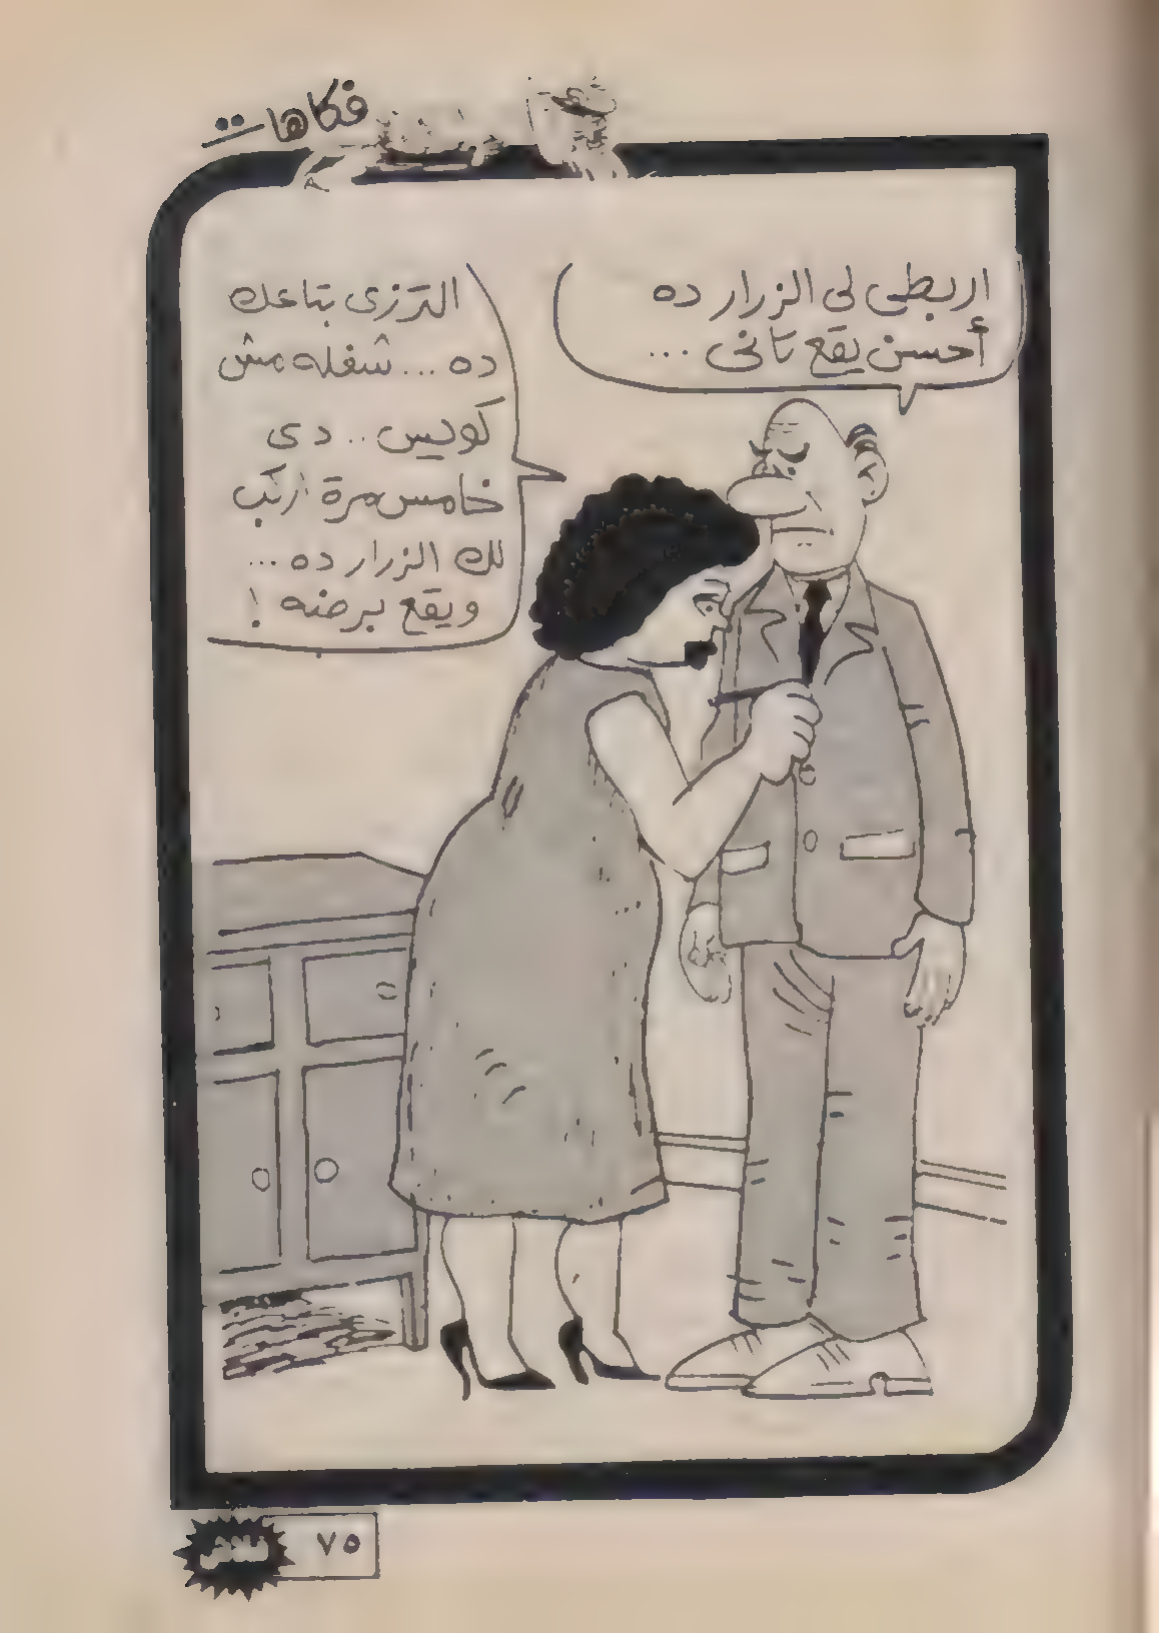 فكاهات
إربطى لى الزرار ده
أحسن يقع تانى ...
الترزى بتاعك
ده ... شغله مش
كويس .. دى
خامس مرة اركب
لك الزرار ده ...
ويقع برضه !
٧٥
فلاش